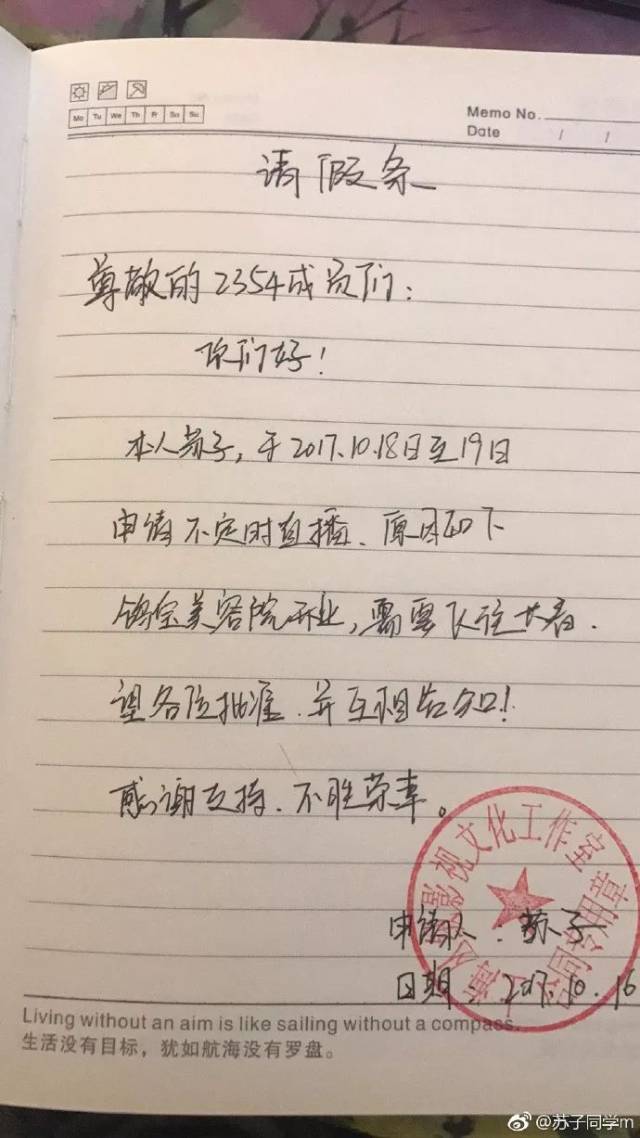 Mo Tu We Th Fr Sa Su
Memo No.
Date / /
请假条
尊敬的2354成员们：
你们好！
本人苏子，于2017.10.18日至19日
申请不定时直播、原因如下
美容院开业，需要飞往长春.
望各位批准、并互相告知！
感谢支持、不胜荣幸。
影视文化工作室
合同专用章
申请人：苏子
日期：2017.10.16
Living without an aim is like sailing without a compass.
生活没有目标，犹如航海没有罗盘。
@苏子同学m